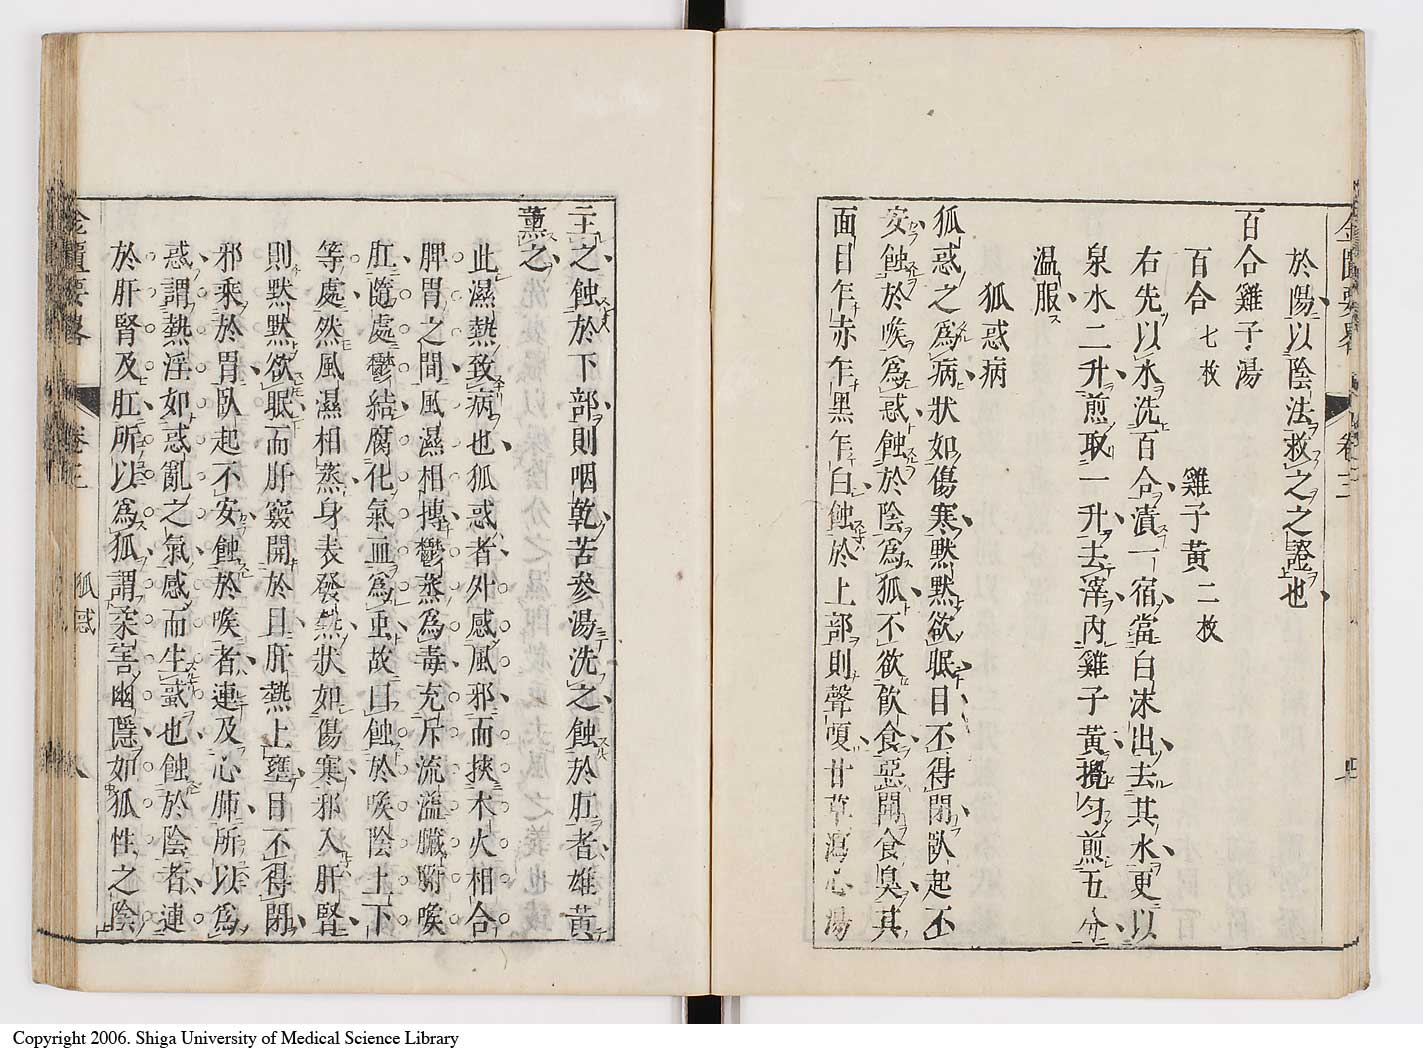 於陽以陰法救之之證也
百合雞子湯
百合七枚 雞子黃二枚
右先以水洗百合漬一宿當白沫出去其水更以
泉水二升煎取一升去滓內雞子黃攪勻煎五分
温服
狐惑病
狐惑之爲病狀如傷寒默默欲眠目不得閉臥起不
安蝕於喉爲惑蝕於陰爲狐不欲飲食惡聞食臭其
面目乍赤乍黑乍白蝕於上部則聲嗄甘草瀉心湯
主之蝕於下部則咽乾苦參湯洗之蝕於肛者雄黃
薰之
此濕熱致病也狐惑者外感風邪而挾木火相合
脾胃之間風濕相摶鬱蒸爲毒充斥流溢臟腑喉
肛隨處鬱結腐化氣血爲虫故曰蝕於喉陰上下
等處然風濕相蒸身表發熱狀如傷寒邪入肝腎
則默默欲眠而肝竅開於目肝熱上壅目不得閉
邪乘於胃臥起不安蝕於喉者連及心肺所以爲
惑謂熱淫如惑亂之氣感而生蜮也蝕於陰者連
於肝腎及肛所以爲狐謂柔害幽隱如狐性之陰
金匱要畧
卷三
狐惑
八
Copyright 2006. Shiga University of Medical Science Library